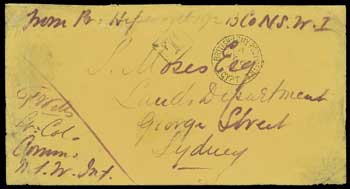 From Pr. 192 D Co N.S.W. I
S. Moses Esq
Lands Department
George Street
Sydney
Lt: Col-
Comm:
N.S.W. Inf.